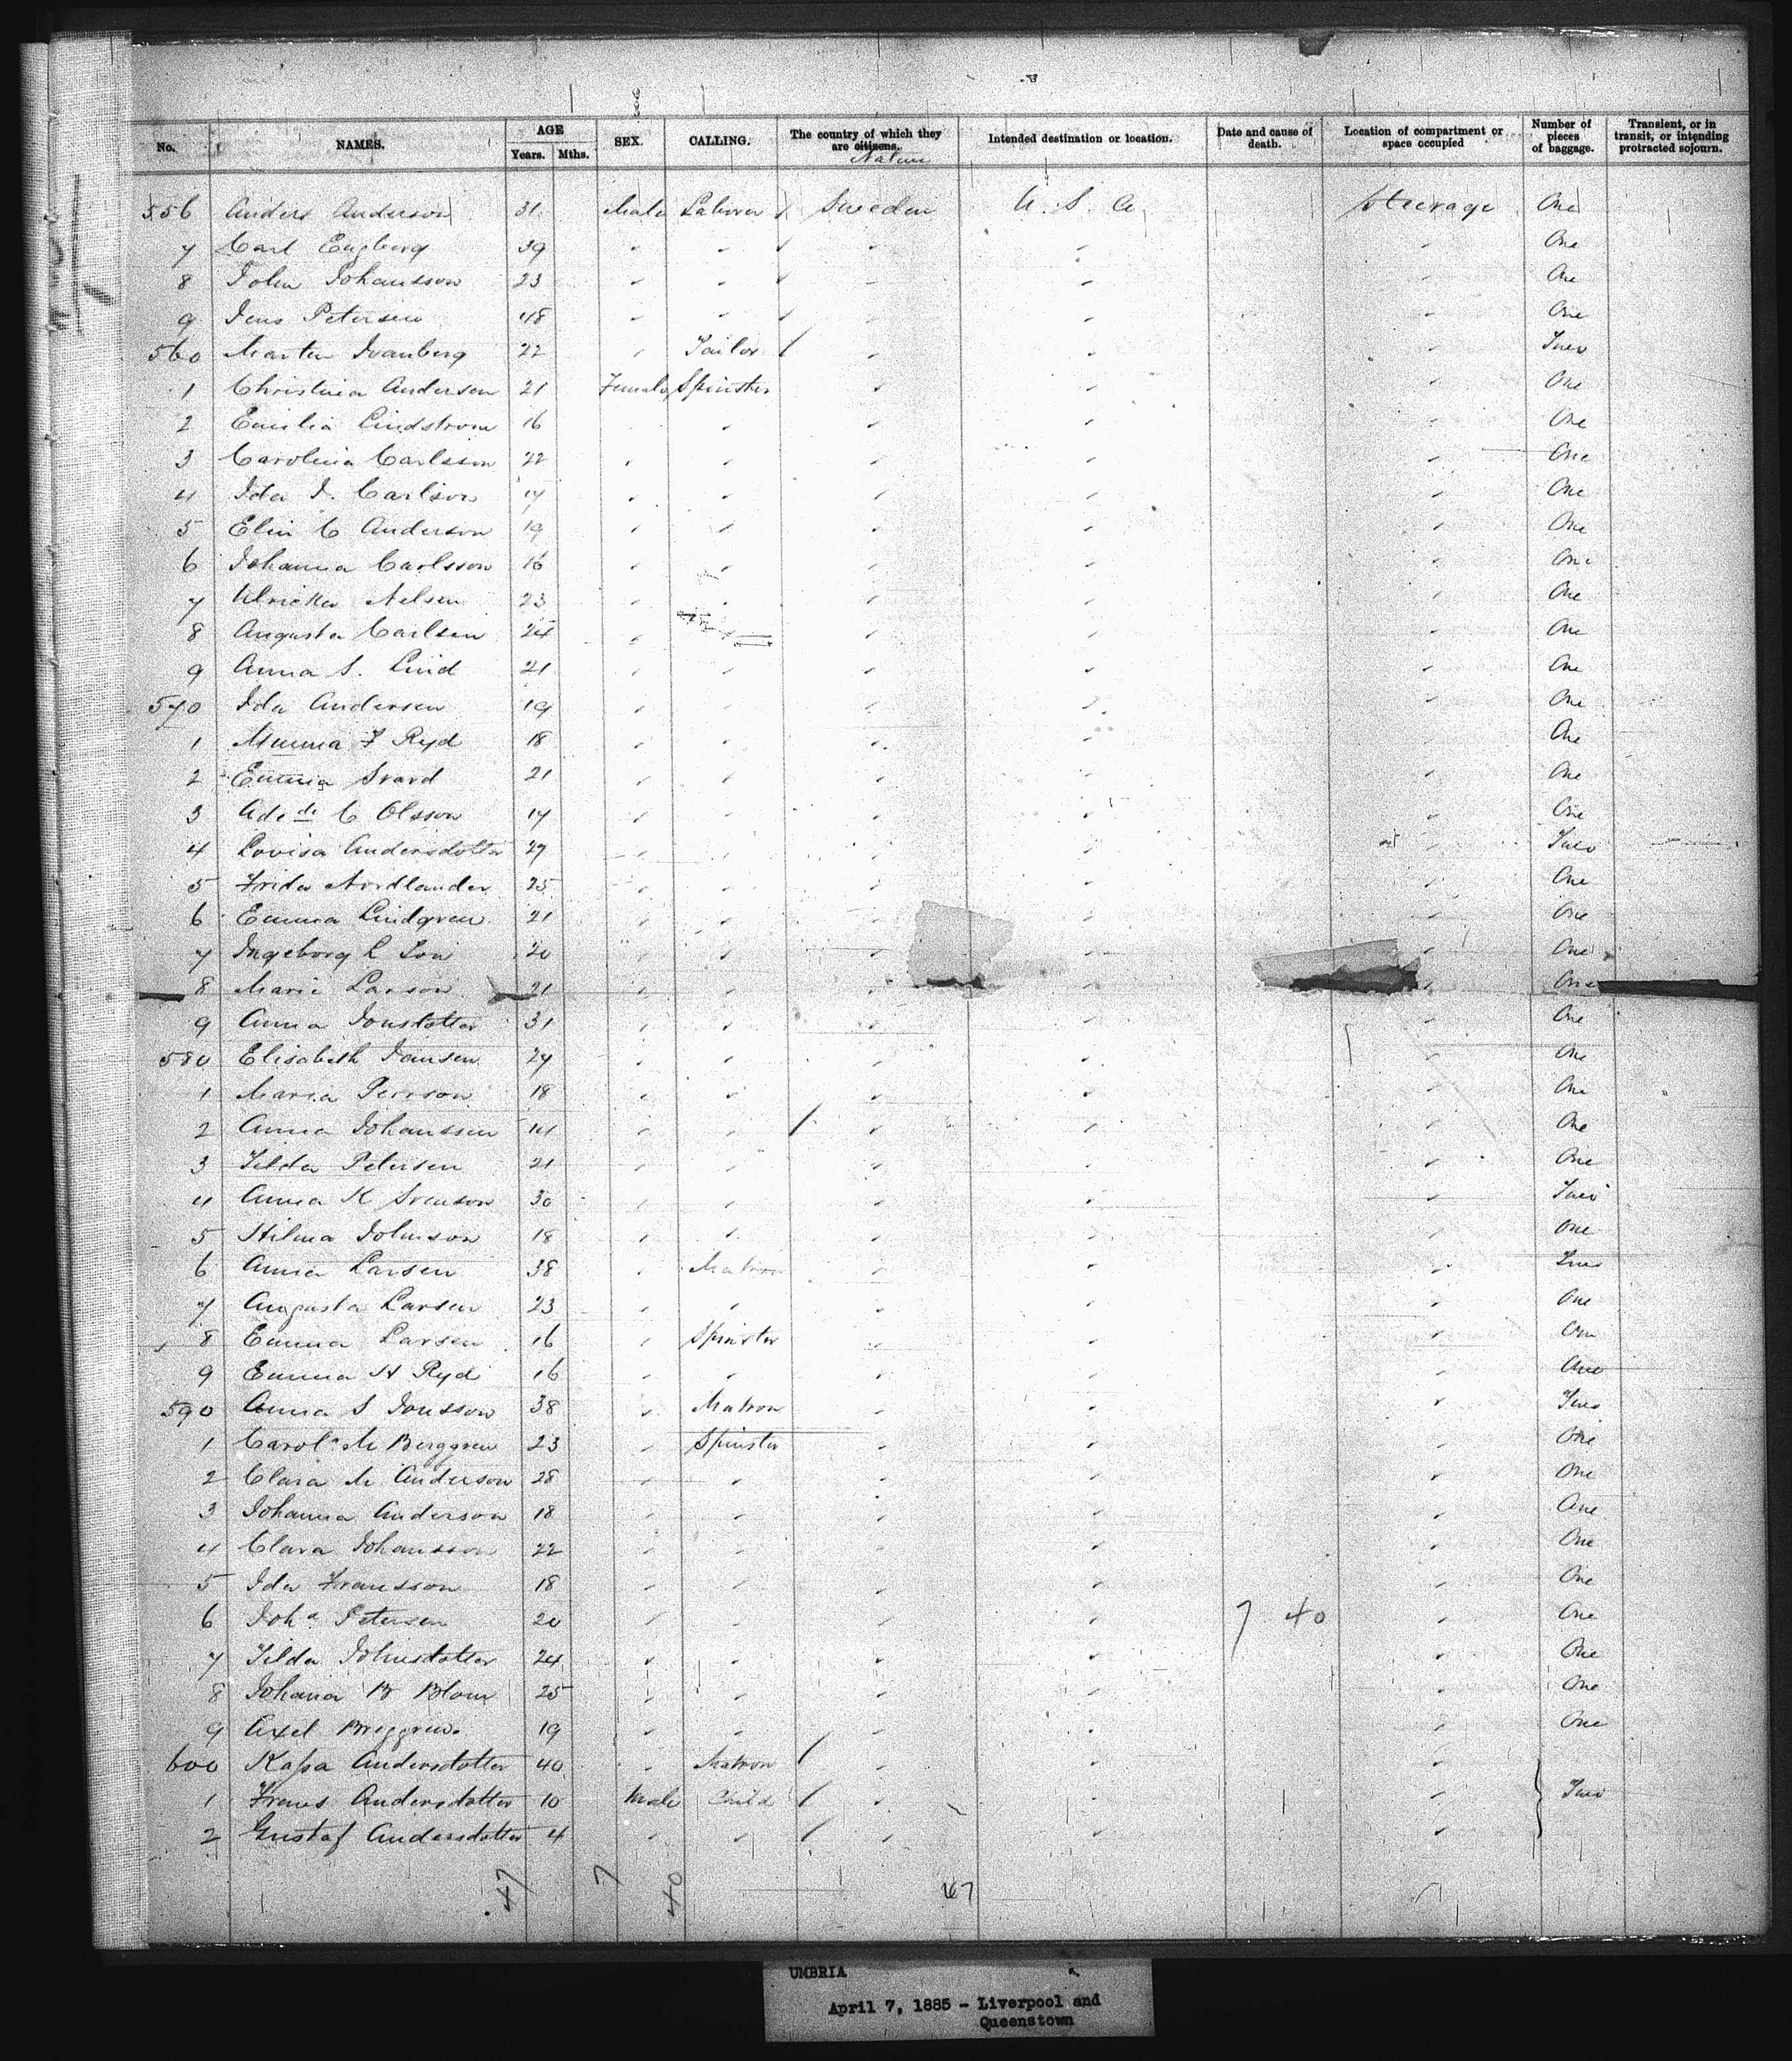 No. NAMES. AGE Years. Mths. SEX. CALLING. The country of which they are citizens. Intended destination or location. Date and cause of death. Location of compartment or space occupied Number of pieces of baggage. Transient, or in transit, or intending protracted sojourn.
Native
556 Anders Anderson 31 Male Laborer / Sweden U. S. A. Steerage One
7 Carl Engberg 39 " " / " " " One
8 John Johansson 23 " " / " " " One
9 Jens Petersen 48 " " / " " " One
560 Marten Svanberg 22 " Tailor / " " " Two
1 Christina Andersen 21 Female Spinster " " " One
2 Emilia Lindstrom 16 " " " " " One
3 Carolina Carlsson 22 " " " " " One
4 Ida I. Carlson 17 " " " " " One
5 Elin C Anderson 19 " " " " " One
6 Johanna Carlsson 16 " " " " " One
7 Ulricka Nelsen 23 " " " " " One
8 Augusta Carlsen 24 " " " " " One
9 Anna S. Lind 21 " " " " " One
570 Ida Andersen 19 " " " " " One
1 Minna F Ryd 18 " " " " " One
2 Emma Svard 21 " " " " " One
3 Ade de C Olsson 17 " " " " " One
4 Lovisa Andersdotter 27 " " " " " Two
5 Frida Nordlander 25 " " " " " One
6 Emma Lindgren 21 " " " " " One
7 Ingeborg L 20 " " " " " One
8 Marie Larson 21 " " " " " One
9 Anna Jonsdotter 31 " " " " " One
580 Elisabeth Jansen 27 " " " " " One
1 Maria Peirson 18 " " " " " One
2 Anna Johanssen 14 " " / " " " One
3 Tilda Petersen 21 " " " " " One
4 Anna K Svenson 30 " " " " " Two
5 Hilma Johnson 18 " " " " " One
6 Anna Larsen 38 " Matron " " " Two
7 Augusta Larsen 23 " " " " " One
8 Emma Larsen 16 " Spinster " " " One
9 Emma H Ryd 16 " " " " " One
590 Anna S Jonsson 38 " Matron " " " Two
1 Carola M Berggren 23 " Spinster " " " One
2 Clara M. Anderson 28 " " " " " One
3 Johanna Anderson 18 " " " " " One
4 Clara Johansson 22 " " " " " One
5 Ida Fransson 18 " " " " " One
6 Joha. Petersen 20 " " " " 7 40 " One
7 Tilda Johnsdotter 24 " " " " " One
8 Johana B Blom 25 " " " " " One
9 Axel Breggren. 19 " " " " " One
600 Kajsa Andersdotter 40 " Matron / "
1 Frans Andersdotter 10 Male Child / " " Two
2 Gustaf Andersdotter 4 " " / " " "
47 7 40 47
UMBRIA
April 7, 1885 - Liverpool and
Queenstown